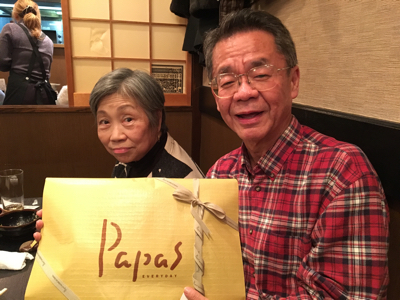 Papas
EVERYDAY